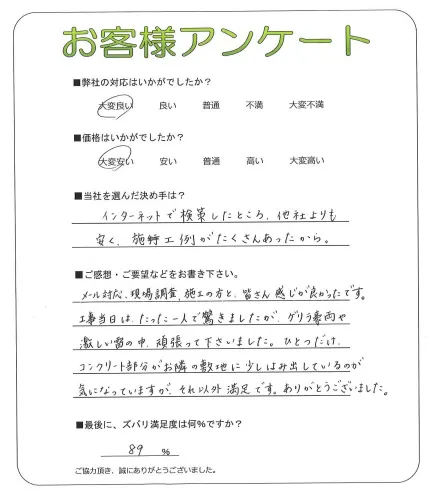 お客様アンケート
■弊社の対応はいかがでしたか？
大変良い 良い 普通 不満 大変不満
■価格はいかがでしたか？
大変安い 安い 普通 高い 大変高い
■当社を選んだ決め手は？
インターネットで検索したところ、他社よりも
安く、施工例がたくさんあったから。
■ご感想・ご要望などをお書き下さい。
メール対応、現場調査、施工の方と、皆さん感じが良かったです。
工事当日は、たった一人で驚きましたが、ゲリラ豪雨や
激しい雷の中、頑張って下さいました。ひとつだけ、
コンクリート部分がお隣の敷地に少しはみ出しているのが
気になっていますが、それ以外満足です。ありがとうございました。
■最後に、ズバリ満足度は何%ですか？
89 %
ご協力頂き、誠にありがとうございました。